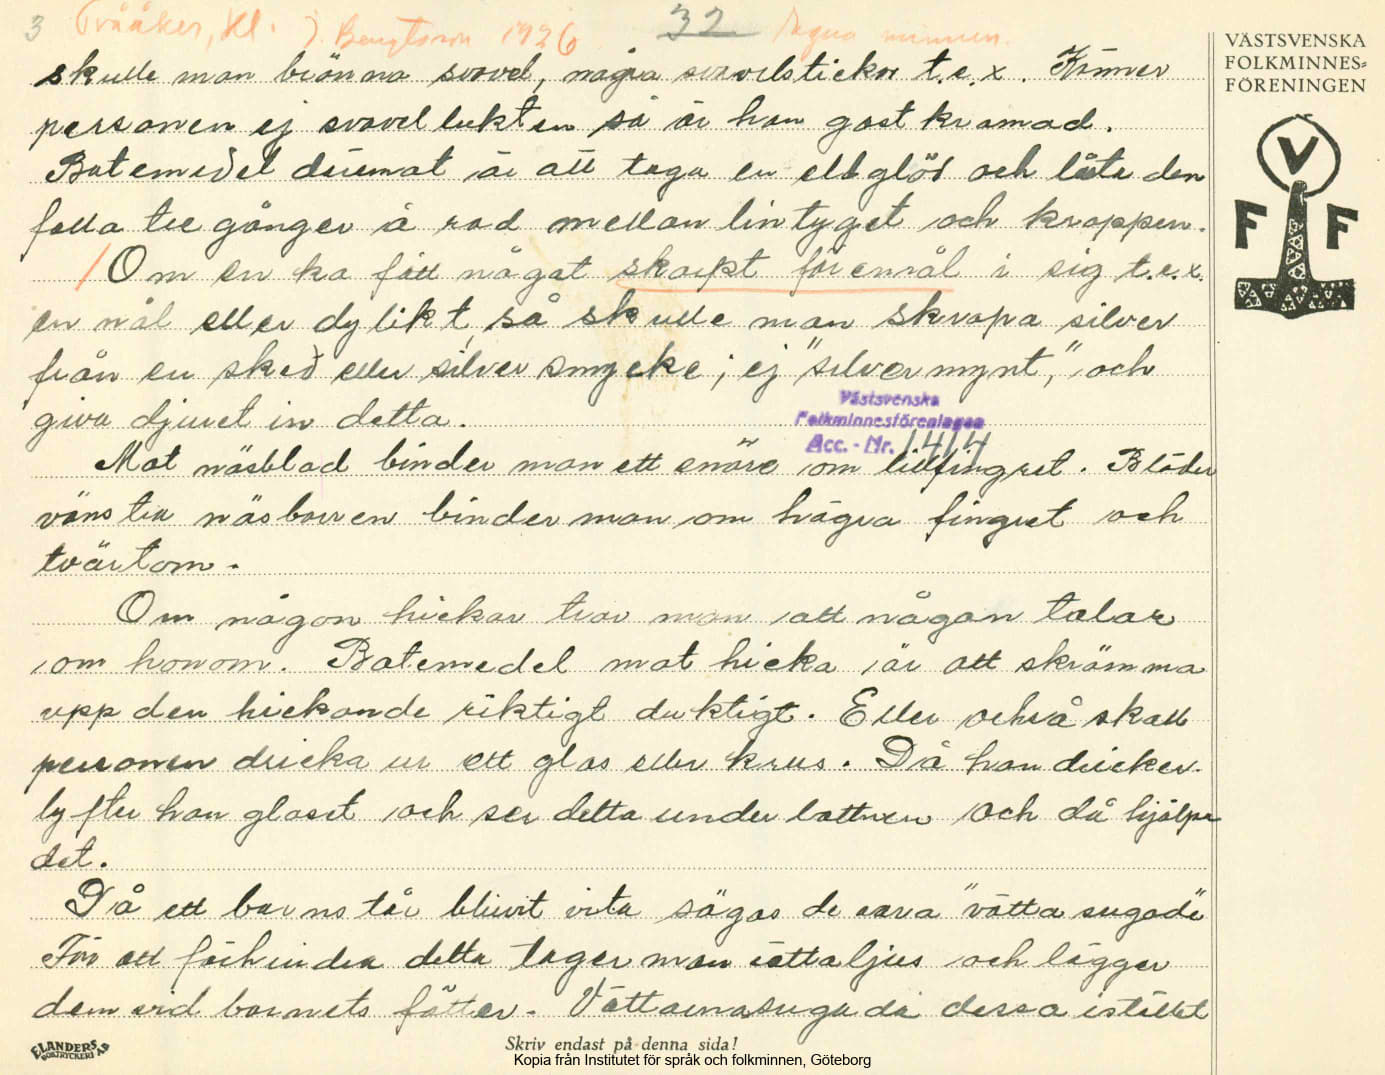 3 Tvååker, Hl. J. Bengtsson 1926 32 Egna minnen.
VÄSTSVENSKA
FOLKMINNES=
FÖRENINGEN
V
F F
skulle man bränna svavel, några svavelstickor t.e.x. Känner
personen ej svavellukten så är han gastkramad.
Botemedel däremot är att taga en eldglöd och låta den
falla tre gånger å rad mellan lintyget och kroppen.
Om en ko fått något skarpt föremål i sig t.e.x.
en nål eller dylikt, så skulle man skrapa silver
från en sked eller silversmycke; ej "silvermynt", och
giva djuret in detta.
Västsvenska
Folkminnesföreningen
Acc. - Nr. 1414
Mot näsblod binder man ett snöre om lillfingret. Blöder
vänstra näsborren binder man om högra fingret och
tvärtom.
Om någon hickar tror man att någon talar
om honom. Botemedel mot hicka är att skrämma
upp den hickande riktigt duktigt. Eller också skall
personen dricka ur ett glas eller krus. Då han dricker
lyfter han glaset och ser detta under bottnen och då hjälper
det.
Då ett barns tår blivit vita sägas de vara "vättasugade"
För att förhindra detta tager man vättaljus och lägger
dem vid barnets fötter. Vättarna suga då dessa istället
Skriv endast på denna sida!
ELANDERS
BOKTRYCKERI AB
Kopia från Institutet för språk och folkminnen, Göteborg